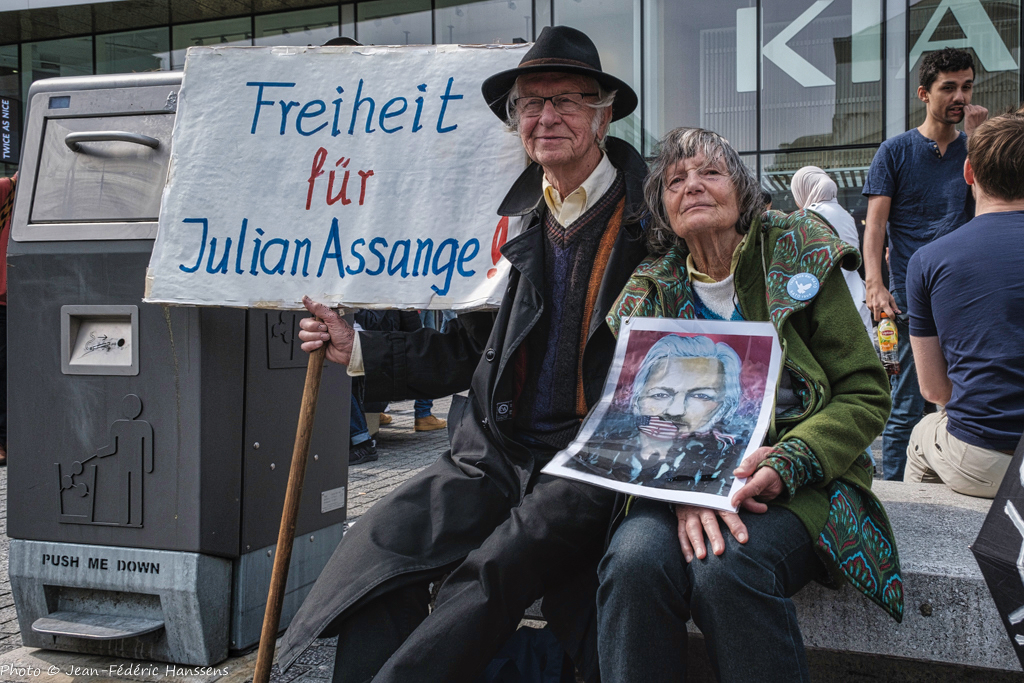 Freiheit
für
Julian Assange!
KIA
TWICE AS NICE
PUSH ME DOWN
Photo © Jean-Fédéric Hanssens